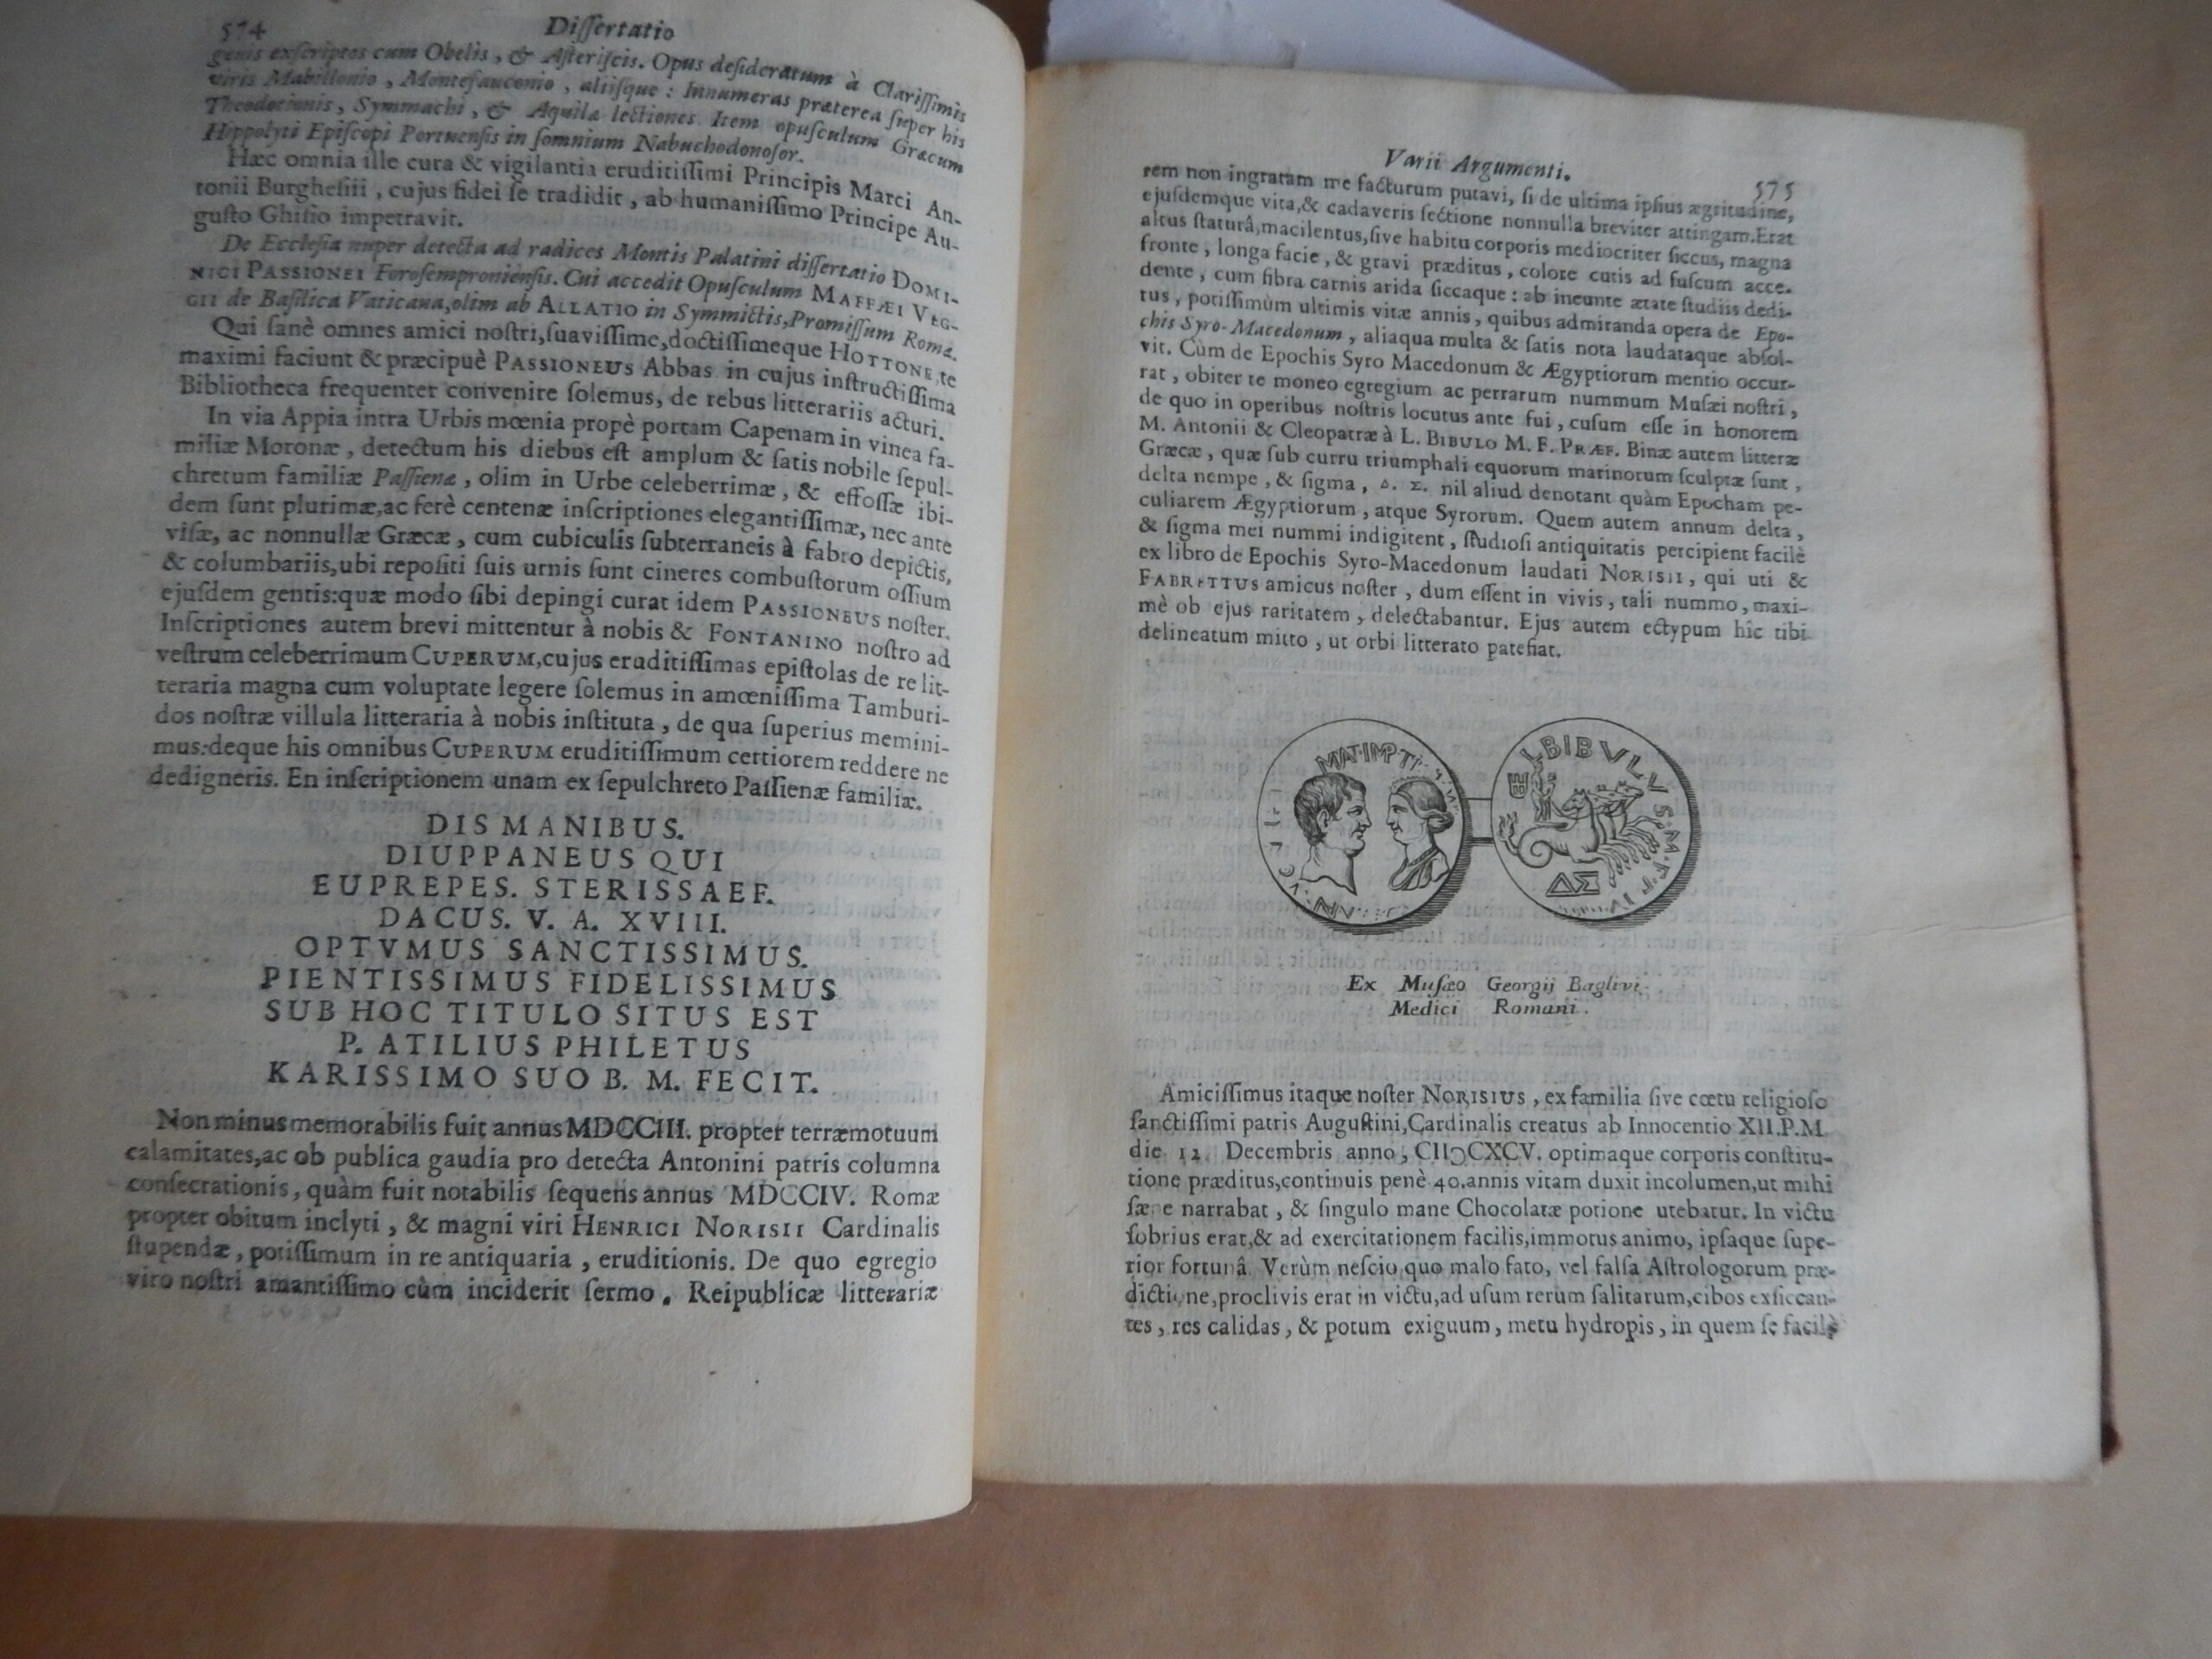 574
Dissertatio
genis exscriptos cum Obelis, & Asteriscis. Opus desideratum à Clarissimis
viris Mabillonio, Montefauconio, aliisque : Innumeras præterea super his
Theodotionis, Symmachi, & Aquilæ lectiones. Item opusculum Græcum
Hippolyti Episcopi Portuensis in somnium Nabuchodonosor.
Hæc omnia ille cura & vigilantia eruditissimi Principis Marci An-
tonii Burghesiii, cujus fidei se tradidit, ab humanissimo Principe Au-
gusto Ghisio impetravit.
De Ecclesia nuper detecta ad radices Montis Palatini dissertatio DOMI-
NICI PASSIONEI Forosemproniensis. Cui accedit Opusculum MAFFÆI VEG-
GII de Basilica Vaticana, olim ab ALLATIO in Symmictis, Promissum Romæ.
Qui sanè omnes amici nostri, suavissime, doctissimeque HOTTONE, te
maximi faciunt & præcipuè PASSIONEUS Abbas in cujus instructissima
Bibliotheca frequenter convenire solemus, de rebus litterariis acturi.
In via Appia intra Urbis mœnia propè portam Capenam in vinea fa-
miliæ Moronæ, detectum his diebus est amplum & satis nobile sepul-
chretum familiæ Passienæ, olim in Urbe celeberrimæ, & effossæ ibi-
dem sunt plurimæ, ac ferè centenæ inscriptiones elegantissimæ, nec ante
visæ, ac nonnullæ Græcæ, cum cubiculis subterraneis à fabro depictis,
& columbariis, ubi repositi suis urnis sunt cineres combustorum ossium
ejusdem gentis: quæ modo sibi depingi curat idem PASSIONEUS noster.
Inscriptiones autem brevi mittentur à nobis & FONTANINO nostro ad
vestrum celeberrimum CUPERUM, cujus eruditissimas epistolas de re lit-
teraria magna cum voluptate legere solemus in amœnissima Tamburi-
dos nostræ villula litteraria à nobis instituta, de qua superius memini-
mus: deque his omnibus CUPERUM eruditissimum certiorem reddere ne
dedigneris. En inscriptionem unam ex sepulchreto Passienæ familiæ.
DIS MANIBUS.
DIUPPANEUS QUI
EUPREPES. STERISSAEF.
DACUS. V. A. XVIII.
OPTVMUS SANCTISSIMUS.
PIENTISSIMUS FIDELISSIMUS
SUB HOC TITULO SITUS EST
P. ATILIUS PHILETUS
KARISSIMO SUO B. M. FECIT.
Non minus memorabilis fuit annus MDCCIII. propter terræmotuum
calamitates, ac ob publica gaudia pro detecta Antonini patris columna
consecrationis, quàm fuit notabilis sequens annus MDCCIV. Romæ
propter obitum inclyti, & magni viri HENRICI NORISII Cardinalis
stupendæ, potissimum in re antiquaria, eruditionis. De quo egregio
viro nostri amantissimo cùm inciderit sermo. Reipublicæ litterariæ
Varii Argumenti.
575
rem non ingratam me facturum putavi, si de ultima ipsius ægritudine,
ejusdemque vita, & cadaveris sectione nonnulla breviter attingam. Erat
altus staturâ, macilentus, sive habitu corporis mediocriter siccus, magna
fronte, longa facie, & gravi præditus, colore cutis ad fuscum acce-
dente, cum fibra carnis arida siccaque : ab ineunte ætate studiis dedi-
tus, potissimùm ultimis vitæ annis, quibus admiranda opera de Epo-
chis Syro-Macedonum, aliaqua multa & satis nota laudataque absol-
vit. Cùm de Epochis Syro Macedonum & Ægyptiorum mentio occur-
rat, obiter te moneo egregium ac perrarum nummum Musæi nostri,
de quo in operibus nostris locutus ante fui, cusum esse in honorem
M. Antonii & Cleopatræ à L. BIBULO M. F. PRÆF. Binæ autem litteræ
Græcæ, quæ sub curru triumphali equorum marinorum sculptæ sunt,
delta nempe, & sigma, Δ. Σ. nil aliud denotant quàm Epocham pe-
culiarem Ægyptiorum, atque Syrorum. Quem autem annum delta,
& sigma mei nummi indigitent, studiosi antiquitatis percipient facilè
ex libro de Epochis Syro-Macedonum laudati NORISII, qui uti &
FABRETTUS amicus noster, dum essent in vivis, tali nummo, maxi-
mè ob ejus raritatem, delectabantur. Ejus autem ectypum hîc tibi
delineatum mitto, ut orbi litterato patefiat.
L·BIBVLVS·M·F
ΔΣ
Ex Musæo Georgij Baglivi
Medici Romani.
Amicissimus itaque noster NORISIUS, ex familia sive cœtu religioso
sanctissimi patris Augustini, Cardinalis creatus ab Innocentio XII. P. M.
die 12. Decembris anno, CIIↃCXCV. optimaque corporis constitu-
tione præditus, continuis penè 40. annis vitam duxit incolumen, ut mihi
sæpe narrabat, & singulo mane Chocolatæ potione utebatur. In victu
sobrius erat, & ad exercitationem facilis, immotus animo, ipsaque supe-
rior fortunâ. Verùm nescio quo malo fato, vel falsa Astrologorum præ-
dictione, proclivis erat in victu, ad usum rerum salitarum, cibos exsiccan-
tes, res calidas, & potum exiguum, metu hydropis, in quem se facilè